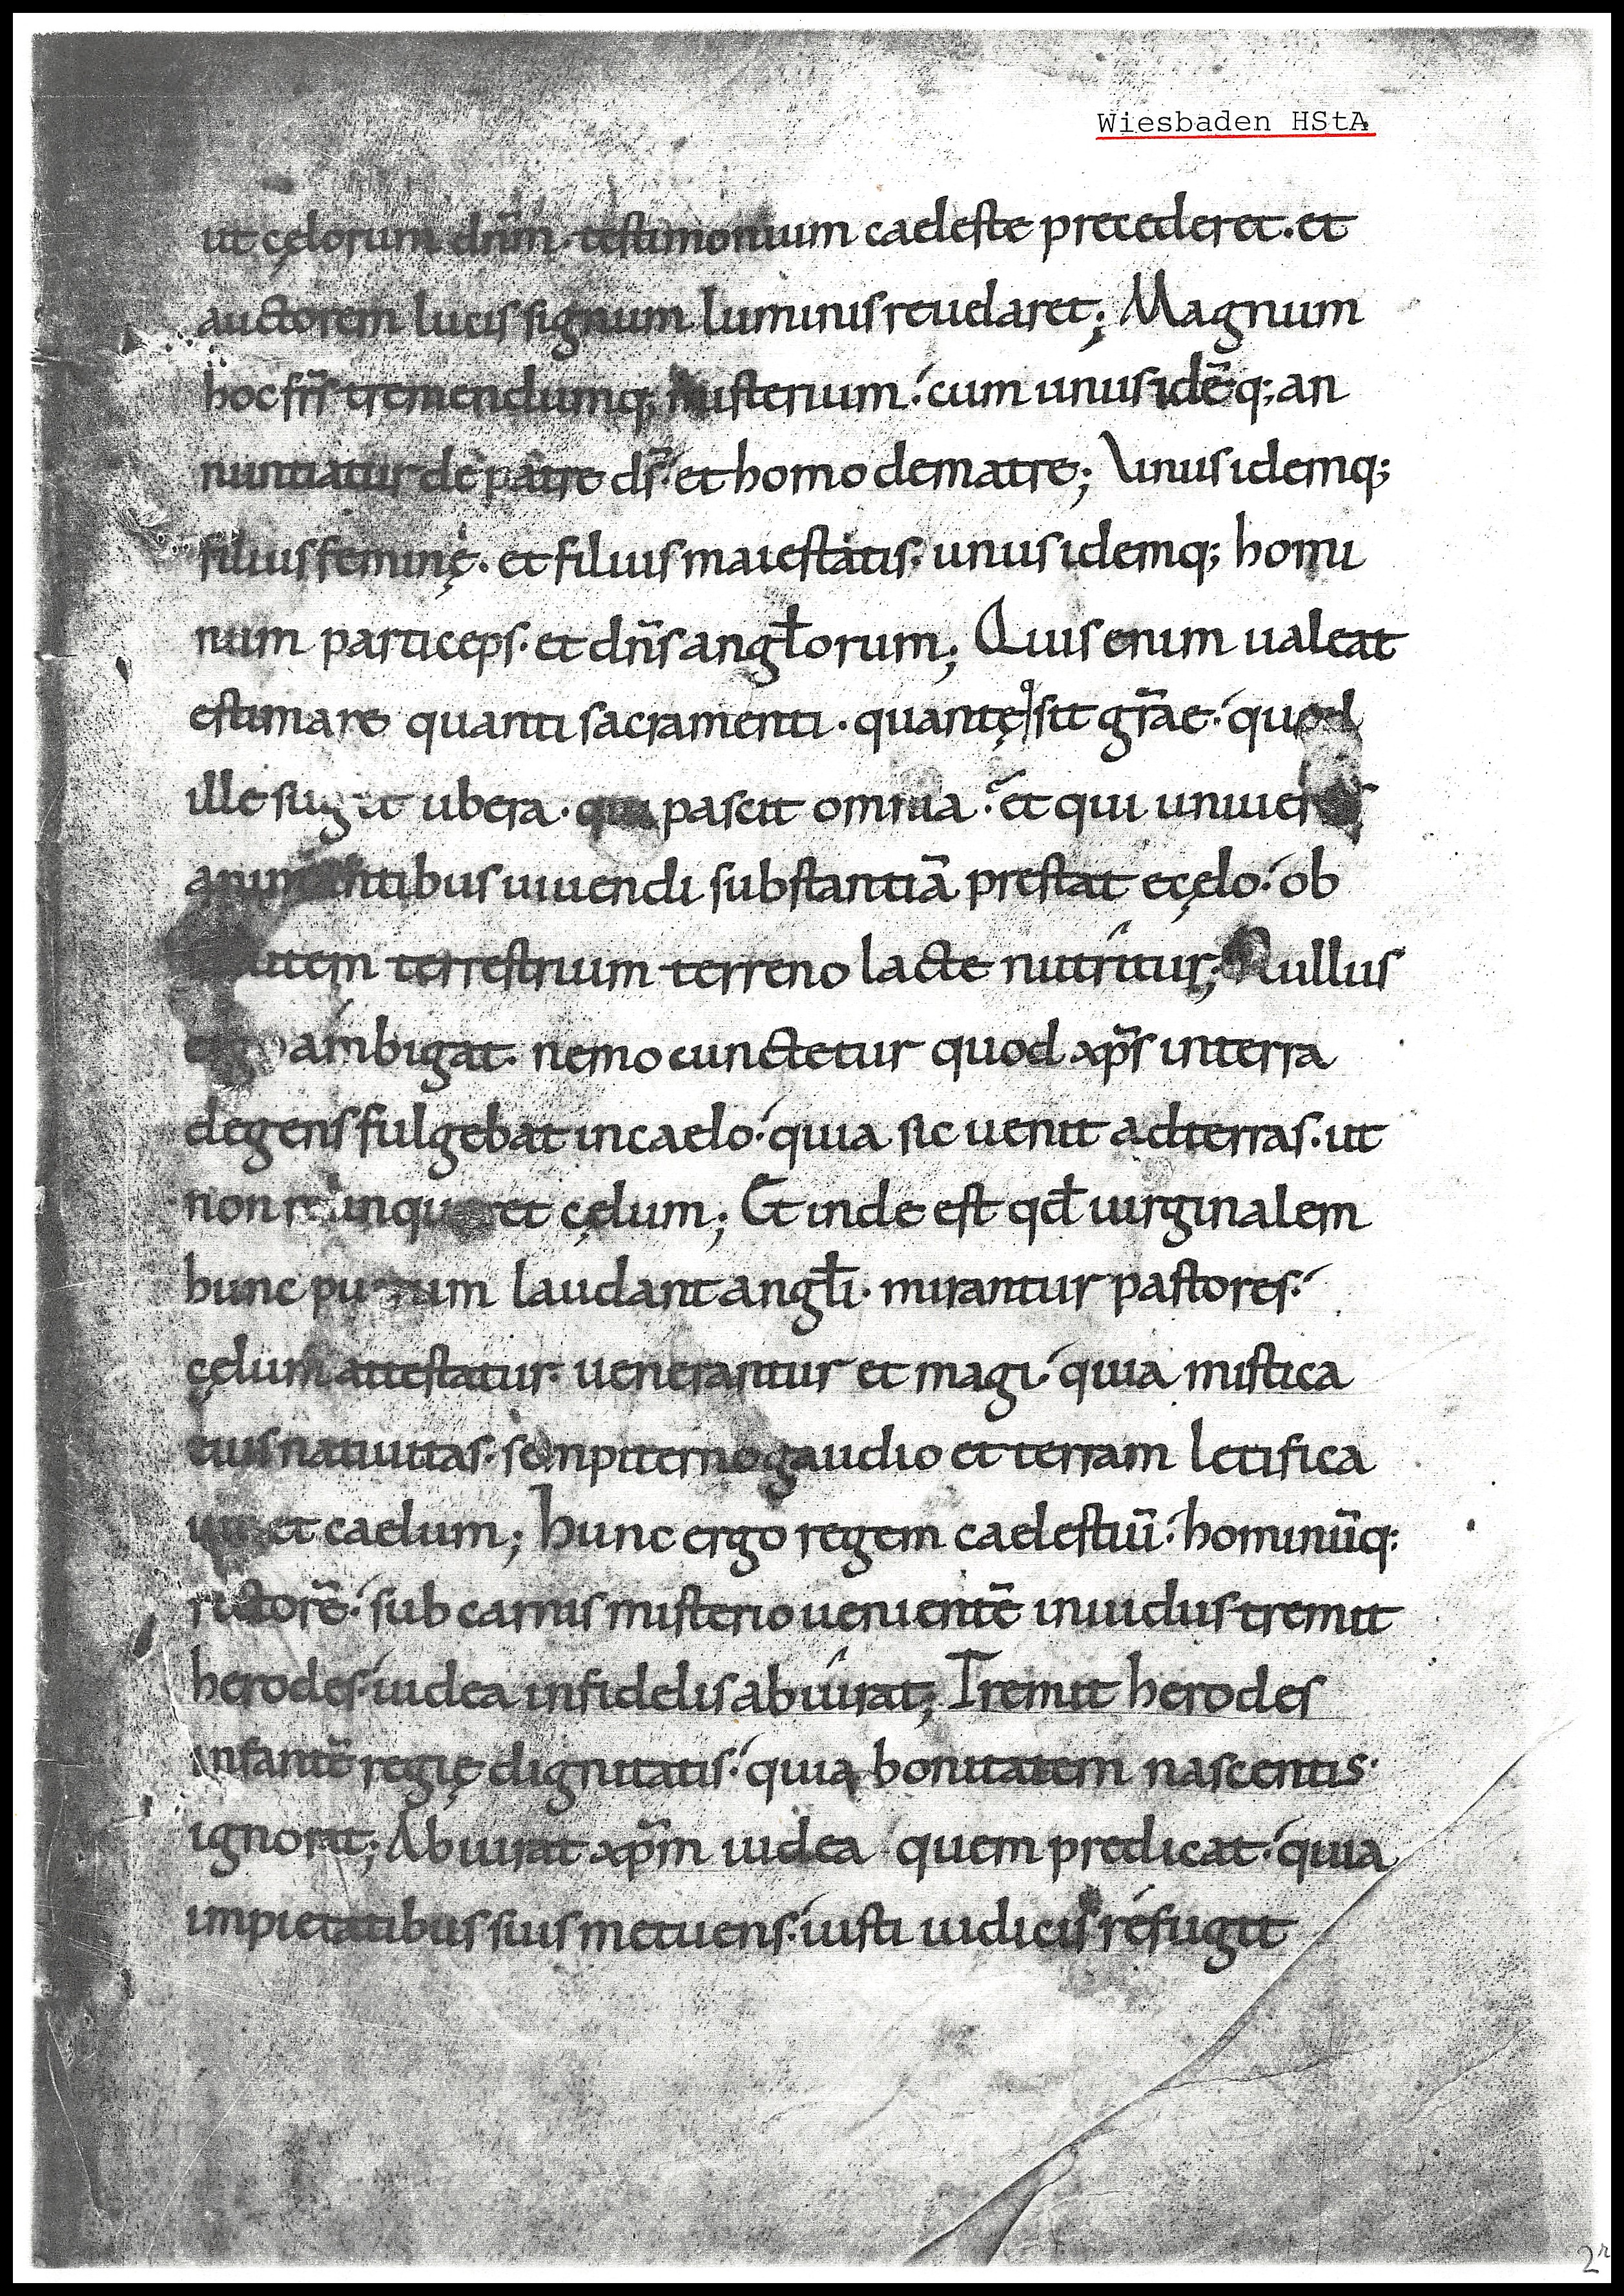 Wiesbaden HStA
ut cęlorum dn̄m. testimonium caeleste precederet. et
auctorem lucis signum luminis reuelaret; Magnum
hoc fr̄s tremendumq; misterium: cum unus idēq; an
nuntiatur de patre d̄s: et homo de matre; Unus idemq;
filius feminę. et filius maiestatis. unus idemq; homi
num particeps. et dn̄s angłorum; Quis enim ualeat
estimare quanti sacramenti. quantę sit gr̄ae: quod
ille sugit ubera. qui pascit omnia: et qui
animantibus uiuendi substantiā prestat e cęlo: ob
terrestrium terreno lacte nutritur; Nullus
ambigat. nemo cunctetur quod xp̄s in terra
degens fulgebat in caelo: quia sic uenit ad terras. ut
non relinqueret cęlum; Et inde est qđ uirginalem
hunc puerum laudant angłi. mirantur pastores:
cęlum attestatur. uenerantur et magi: quia mistica
eius natiuitas. sempiterno gaudio et terram letifica
uit et caelum; hunc ergo regem caelestiū: hominūq;
rectorē: sub carnis misterio uenientē inuidus tremit
herodes: iudea infidelis abiurat; Tremit herodes
infantē regię dignitatis: quia bonitatem nascentis.
ignorat; Abiurat xp̄m iudea quem predicat: quia
impietatibus suis metuens: iusti iudicis refugit
2r